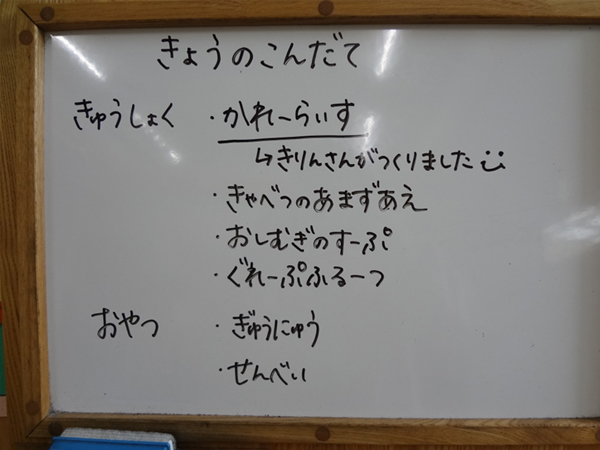 きょうのこんだて
きゅうしょく ・かれーらいす
↳きりんさんがつくりました
・きゃべつのあまずあえ
・おしむぎのすーぷ
・ぐれーぷふるーつ
おやつ ・ぎゅうにゅう
・せんべい